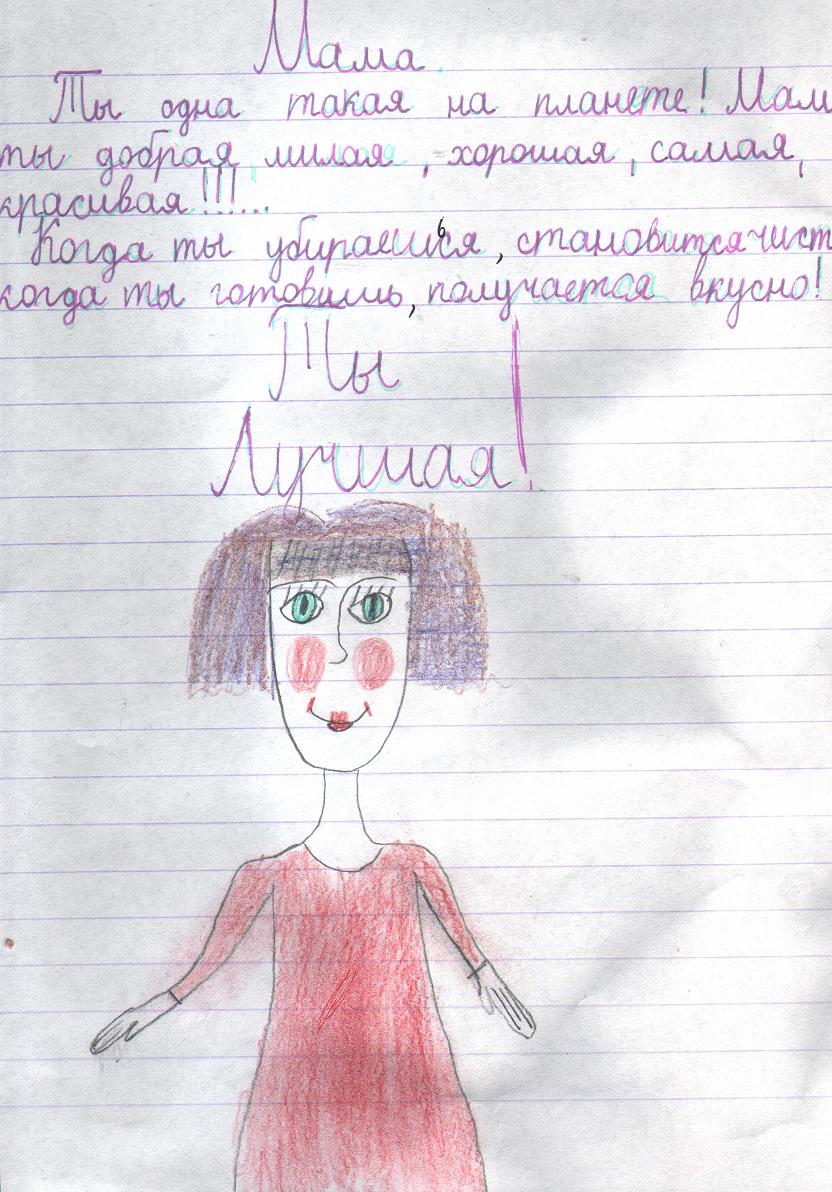 Мама
Ты одна такая на планете! Мам
ты добрая, милая, хорошая, самая,
красивая!!!...
Когда ты убираешься, становится чист
когда ты готовишь, получается вкусно!
Ты
Лучшая!